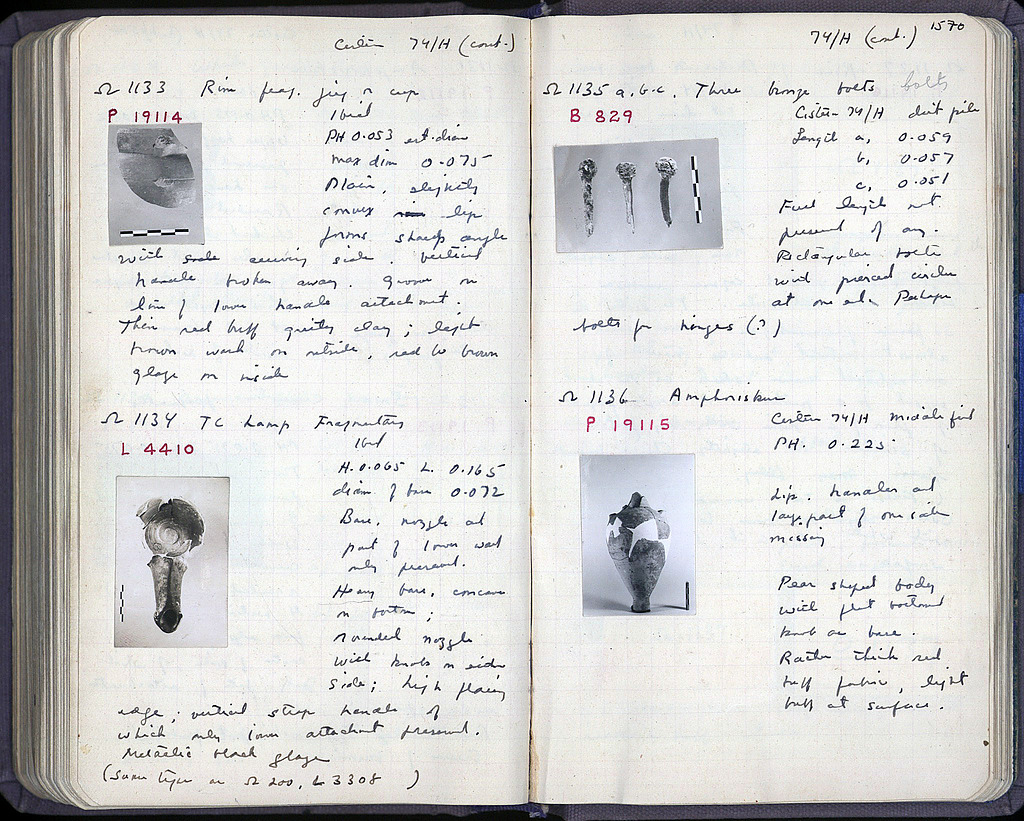 Cistern 74/H (cont.)
Ω 1133 Rim frag. jug or cup
P 19114
Ibid
PH 0.053 est. diam
max dim 0.075
Plain, slightly
convex lip
forms sharp angle
with side. Vertical
handle broken away. Groove on
line of lower handle attachment.
Thin red buff gritty clay; light
brown wash on outside, red to brown
glaze on inside
Ω 1134 TC Lamp Fragmentary
L 4410
Ibid
H. 0.065 L. 0.165
diam. of base 0.072
Base, nozzle and
part of lower wall
only present.
Heavy base, concave
on bottom;
rounded nozzle
with knob on either
side; high flaring
edge; vertical strap handle of
which only lower attachment present.
Metallic black glaze
(Same type as Ω 200, L 3308 )
1570
74/H (cont.)
Ω 1135 a, b, c. Three bronze bolts bolts
B 829
Cistern 74/H dust pile
Length a, 0.059
b, 0.057
c, 0.051
Full length not
present of any.
Rectangular bolts
with pierced circle
at one end. Perhaps
bolts for hinges (?)
Ω 1136 Amphoriskos
P 19115
Cistern 74/H middle fill
PH. 0.225
Lip, handles and
large part of one side
missing
Pear shaped body
with flat bottomed
knob as base.
Rather thick red
buff fabric, light
buff at surface.